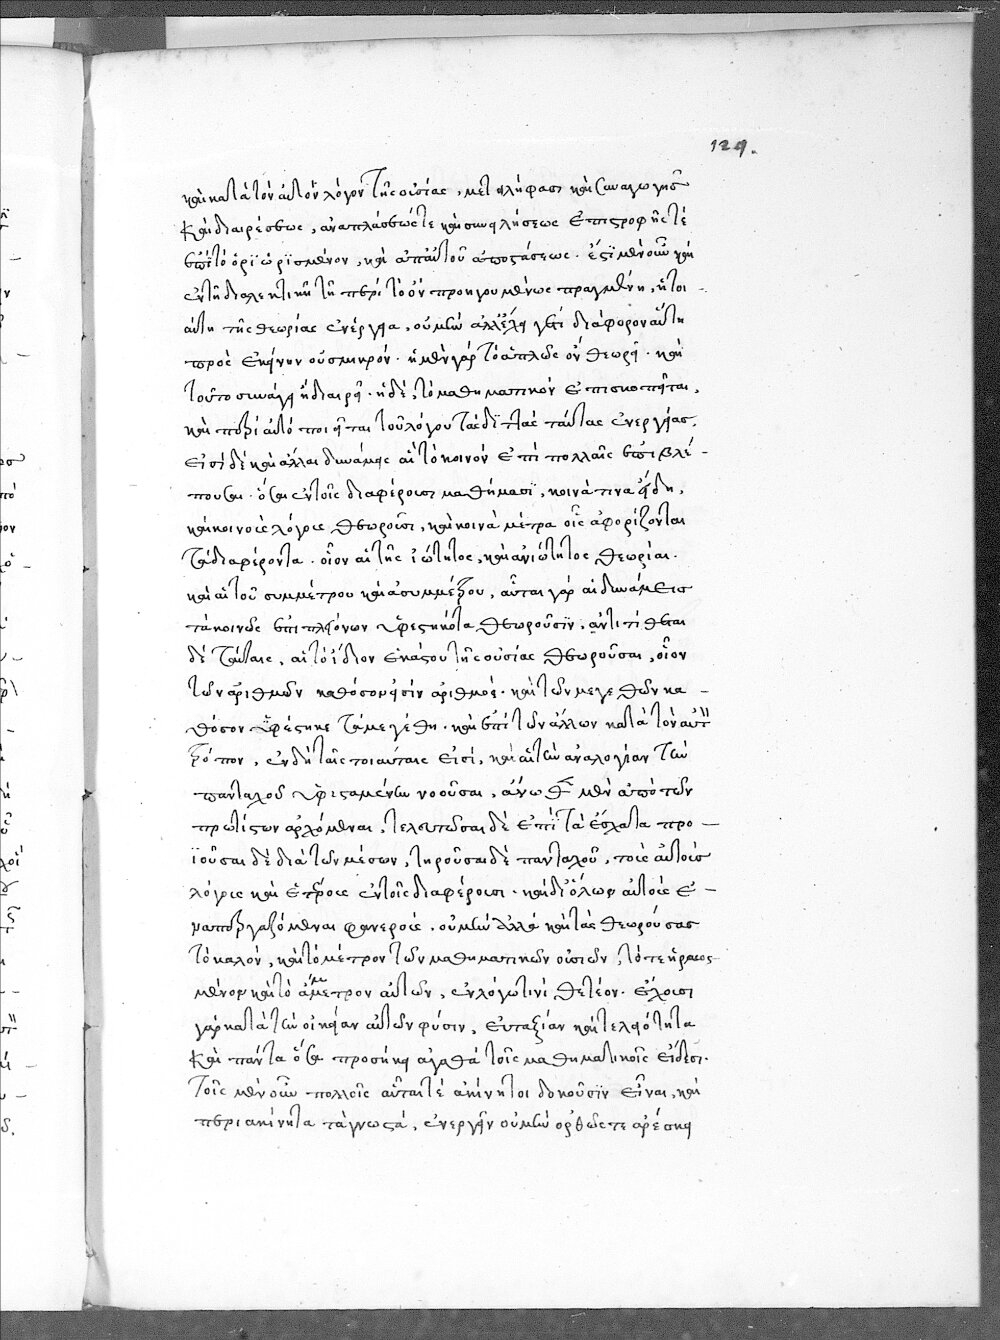 129.
καὶ κατὰ τὸν αὐτὸν λόγον τῆς οὐσίας, μετειλήφασι καὶ συναγωγῆς
καὶ διαιρέσεως, ἀναπλάσεώς τε καὶ συγκλήσεως ἐπιστροφῆς τὲ
ἐπὶ τὸ ὁρϊ ὡρϊσμένον, καὶ ἀπ' αὐτοῦ ἀποστάσεως. ἔστϊ μὲν οὖν καὶ
ἐν τῆ διαλεκτικῆ τῆ περὶ τὸ ὂν προηγουμένως πραγμένη, ἤτοι
αὐτη τῆς θεωρίας ἐνέργεια, οὐ μὴν ἀλλ' ἔχει γέ τι διάφορον αὕτη
πρὸς ἐκείνην οὐ σμικρόν. ἡ μὲν γὰρ τὸ ἁπλῶς ὂν θεωρεῖ. καὶ
τοῦτο συνάγει ἢ διαιρεῖ. ἡ δὲ, τὸ μαθηματικὸν ἐπισκοπεῖται,
καὶ περὶ αὐτό ποιεῖται τοῦ λόγου τὰς διττὰς ταύτας ἐνεργείας.
εἰσὶ δὲ καὶ ἄλλαι δυνάμεις αἳ τὸ κοινὸν ἐπὶ πολλαῖς ἐπιβλέ-
πουσαι. ὅσαι ἐν τοῖς διαφέρουσι μαθήμασϊ, κοινὰ τινα εἴδη,
καὶ κοινοὺς λόγους θεωροῦσι, καὶ κοινὰ μέτρα οἷς ἀφορίζονται
τὰ διαφέροντα. οἷον αἱ τῆς ἰσότητος, καὶ ἀνισότητος θεωρίαι.
καὶ αἱ τοῦ συμμέτρου καὶ ἀσυμμέτρου, αὗται γὰρ αἱ δυνάμεις
τὰ κοινῶς ἐπὶ πλειόνων ὑφεστηκότα θεωροῦσϊν, ἀντιτίθεται
δὲ ταύταις, αἱ τὸ ἴδιον ἑκάστου τῆς οὐσίας θεωροῦσαι, οἷον
τῶν ἀριθμῶν καθόσον εἰσὶν ἀριθμοὶ. καὶ τῶν μεγεθῶν κα-
θόσον ὑφέστηκε τὰ μεγέθη. καὶ ἐπὶ τῶν ἄλλων κατὰ τὸν αὐτ
τρόπον, ἐν δὴ ταῖς τοιαύταις εἰσὶ, καὶ αἱ τὴν ἀναλογίαν τὴν
πανταχοῦ ὑφισταμένην νοοῦσαι, ἄνωθεν μὲν ἀπὸ τῶν
πρωτίστων ἀρχόμεναι, τελευτῶσαι δὲ ἐπὶ τὰ ἔσχατα προ-
ϊοῦσαι δὲ διὰ τῶν μέσων, τηροῦσαι δὲ πανταχοῦ, τοὺς αὐτοὺς
λόγους καὶ ἑτέρους ἐν τοῖς διαφέρουσι. καὶ δι' ὅλων αὐτοὺς ἐ-
ναπεργαζόμεναι φανεροὺς. οὐ μὴν ἀλλὰ καὶ τὰς θεωρούσας
τὸ καλὸν, καὶ τὸ μέτρον τῶν μαθηματικῶν οὐσιῶν, τὸ τε ἡρμος-
μένον καὶ τὸ ἄμμετρον αὐτῶν, ἐν λόγω τινὶ θετέον. ἔχουσι
γὰρ κατὰ τὴν οἰκείαν αὐτῶν φύσιν, εὐταξίαν καὶ τελειότητα
καὶ πάντα ὅσα προσήκει ἀγαθὰ τοῖς μαθηματικοῖς εἴδεσι.
τοῖς μὲν οὖν πολλοῖς αὗται τὲ ἀκίνητοι δοκοῦσϊν εἶναι, καὶ
περὶ ἀκίνητα τὰ γνωστά, ἐνεργεῖν οὐ μὴν ὀρθῶς τε ἀρέσκει